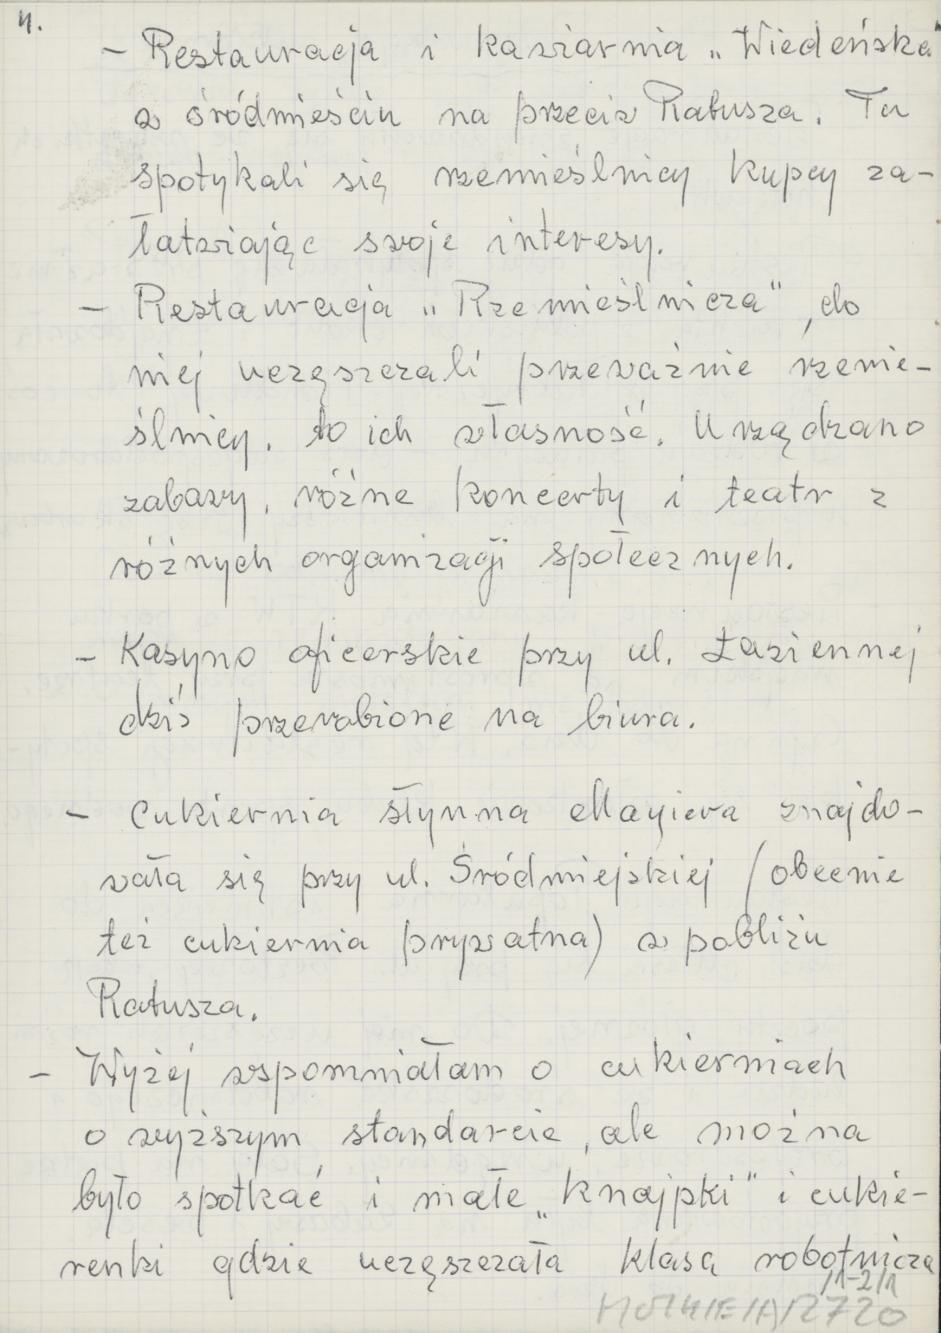 4.
- Restauracja i kawiarnia „Wiedeńska"
w śródmieściu na przeciw Ratusza. Tu
spotykali się rzemieślnicy kupcy za-
łatwiając swoje interesy.
- Restauracja „Rzemieślnicza", do
niej uczęszczali przeważnie rzemie-
ślnicy, to ich własność. Urządzano
zabawy, różne koncerty i teatr z
różnych organizacji społecznych.
- Kasyno oficerskie przy ul. Łaziennej
dziś przerobione na biura.
- Cukiernia słynna Mayiera znajdo-
wała się przy ul. Śródmiejskiej (obecnie
też cukiernia prywatna) w pobliżu
Ratusza.
- Wyżej wspomniałam o cukierniach
o wyższym standarcie, ale można
było spotkać i małe „knajpki" i cukie-
renki gdzie uczęszczała klasa robotnicza
/1-2/1